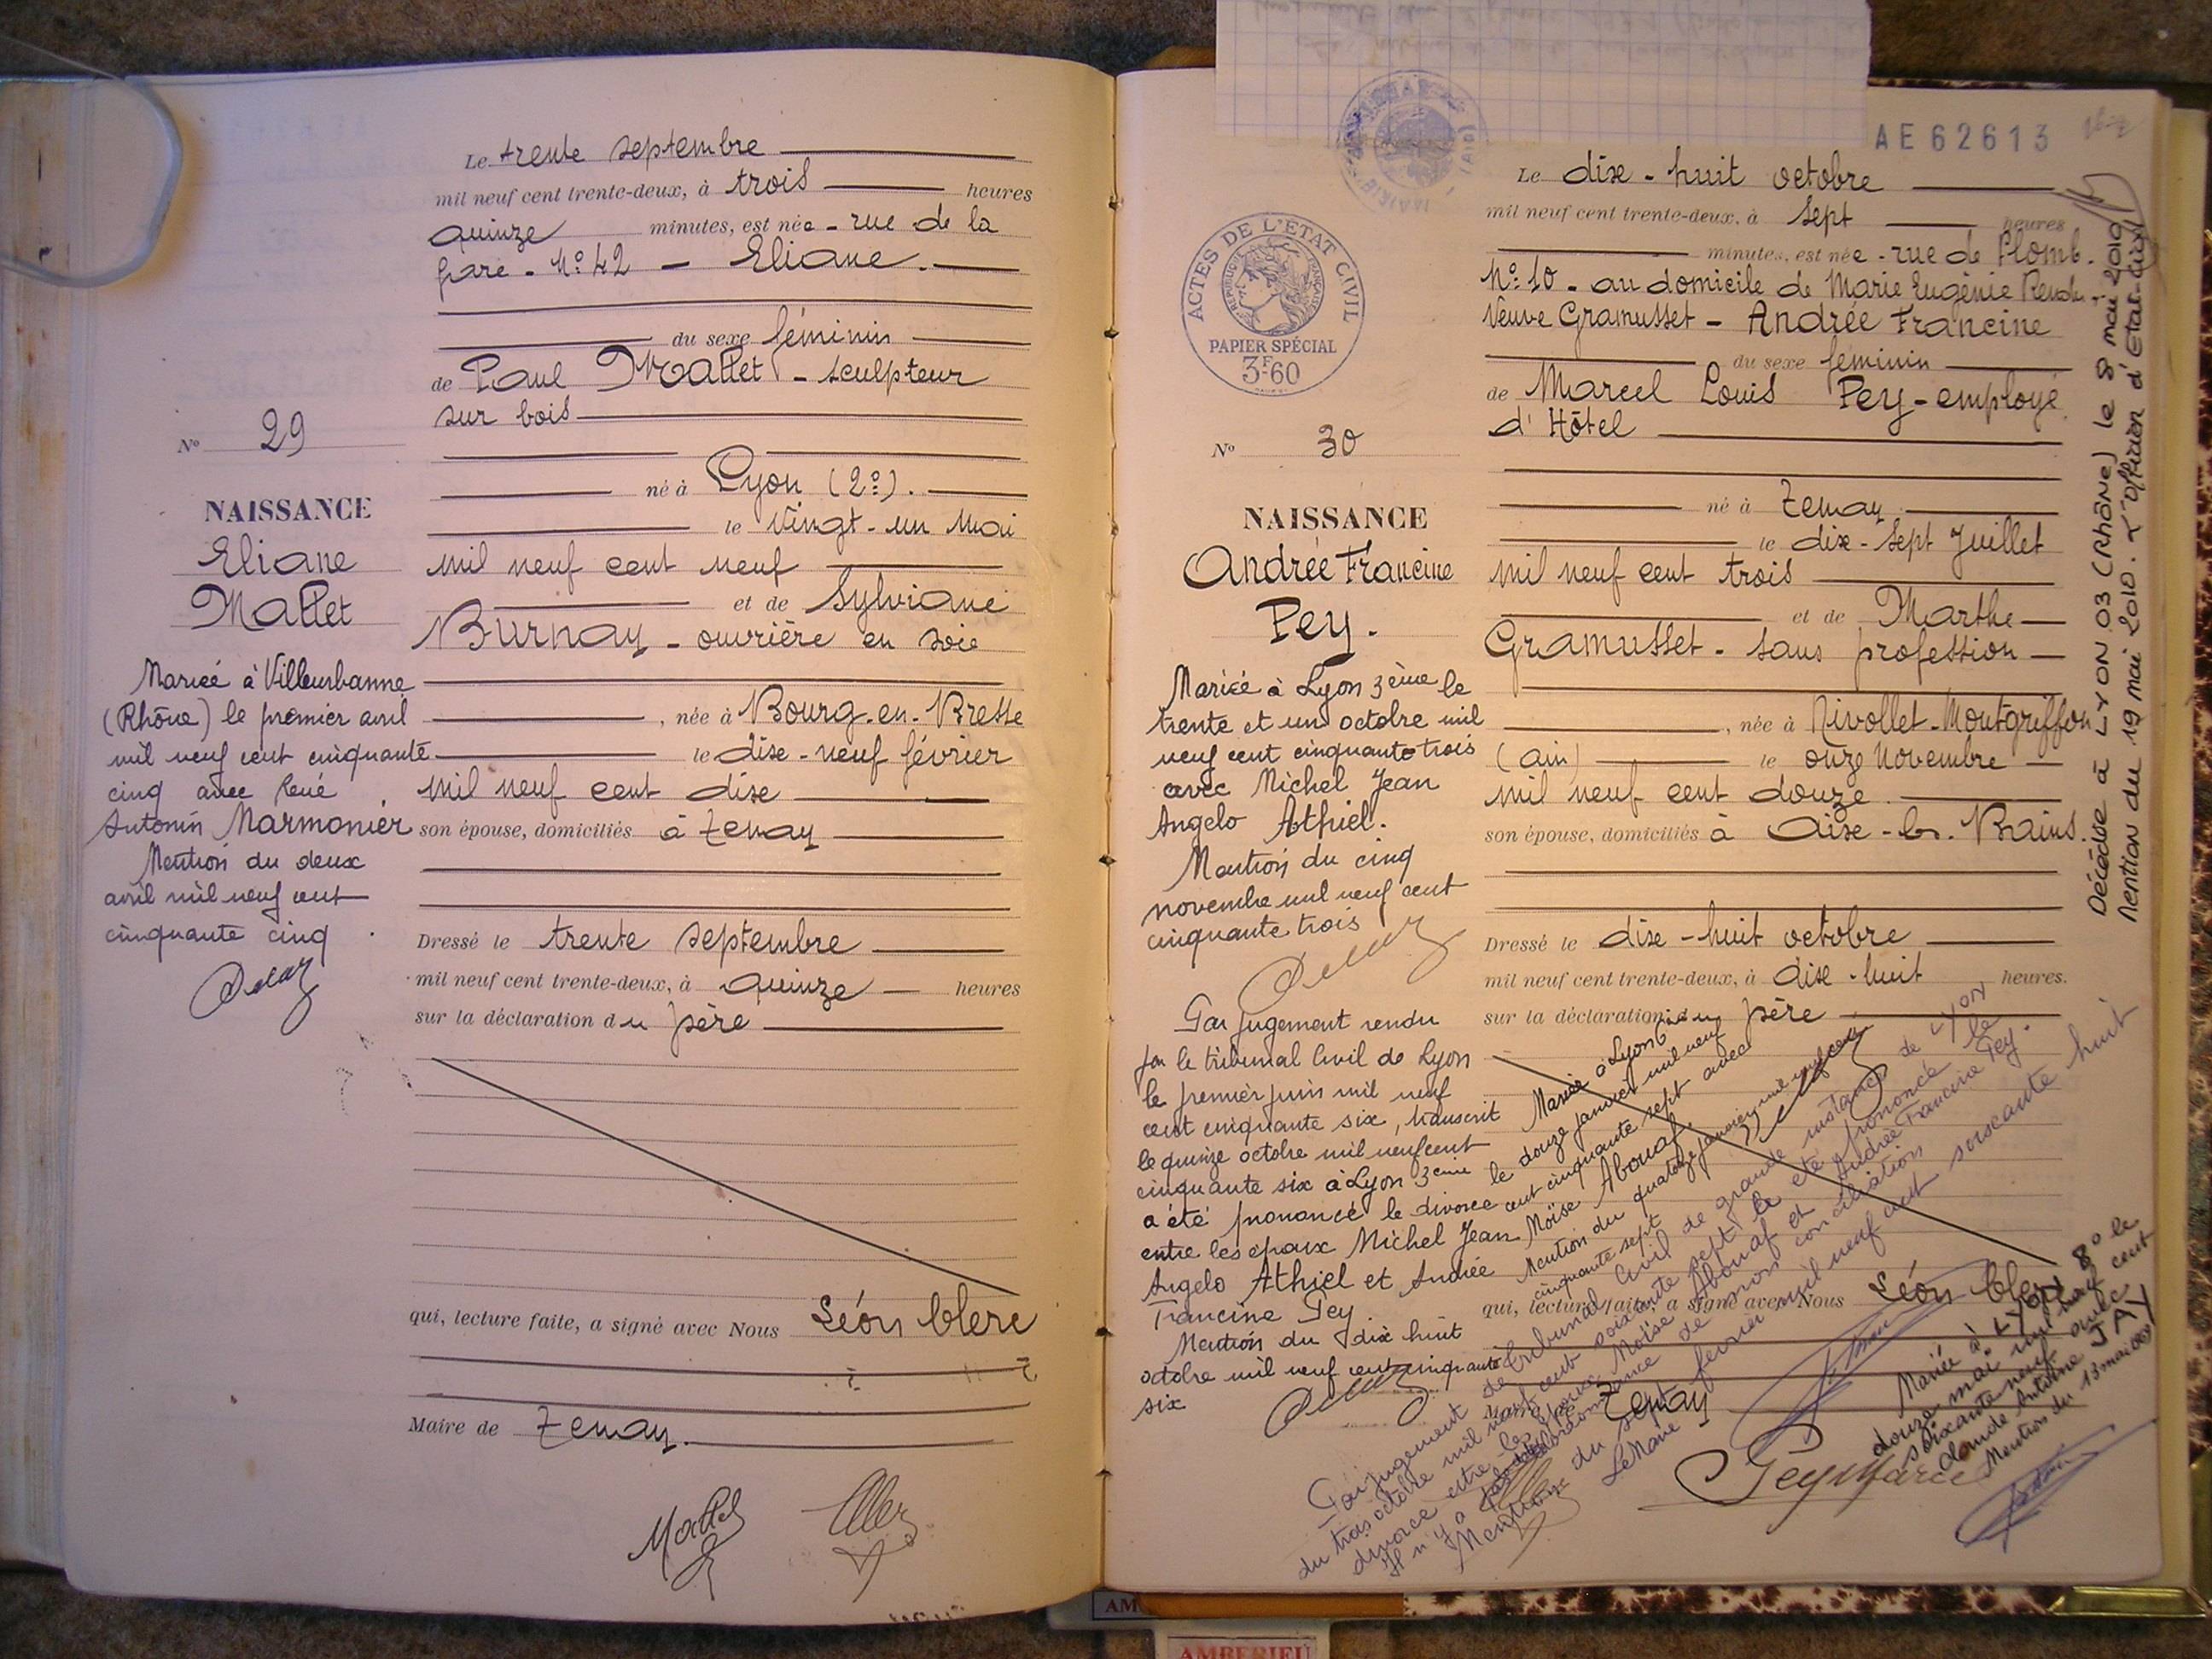 Le trente septembre
mil neuf cent trente-deux, à trois heures
quinze minutes, est née - rue de la
gare - No 42 - Eliane.
du sexe féminin
de Paul Mallet - sculpteur
sur bois
né à Lyon (2e).
le vingt-un Mai
mil neuf cent neuf
et de Sylviane
Burnay - ouvrière en soie
, née à Bourg-en-Bresse
le dix-neuf février
mil neuf cent dix
son épouse, domiciliés à Tenay
Dressé le trente septembre
mil neuf cent trente-deux, à quinze heures
sur la déclaration du père
qui, lecture faite, a signé avec Nous Léon Clerc
Maire de Tenay.
No 29
NAISSANCE
Eliane
Mallet
Mariée à Villeurbanne
(Rhône) le premier avril
mil neuf cent cinquante
cinq avec René
Antonin Marmonier
Mention du deux
avril mil neuf cent
cinquante cinq
AE62613
ACTES DE L'ETAT CIVIL
REPUBLIQUE FRANÇAISE
PAPIER SPÉCIAL
3F60
Le dix-huit octobre
mil neuf cent trente-deux, à sept heures
minutes, est née - rue de Plomb.
No 10 - au domicile de Marie Eugénie
Veuve Gramusset - Andrée Francine
du sexe féminin
de Marcel Louis Pey - employé
d'Hôtel
né à Tenay
le dix-sept Juillet
mil neuf cent trois
et de Marthe
Gramusset - sans profession
, née à Nivollet-Montgriffon
(ain) le onze Novembre
mil neuf cent douze
son épouse, domiciliés à Aix-les-Bains.
Dressé le dix-huit octobre
mil neuf cent trente-deux, à dix-huit heures.
sur la déclaration du père
qui, lecture faite, a signé avec Nous Léon Clerc
Maire de Tenay
Pey Marcel
No 30
NAISSANCE
Andrée Francine
Pey.
Mariée à Lyon 3ème le
trente et un octobre mil
neuf cent cinquante trois
avec Michel Jean
Angelo Athiel.
Mention du cinq
novembre mil neuf cent
cinquante trois
Par jugement rendu
par le tribunal Civil de Lyon
le premier juin mil neuf
cent cinquante six, transcrit
le quinze octobre mil neuf cent
cinquante six à Lyon 3ème
a été prononcé le divorce
entre les époux Michel Jean
Angelo Athiel et Andrée
Francine Pey
Mention du dix huit
octobre mil neuf cent cinquante
six
Mariée à Lyon 6
le douze janvier mil neuf
cent cinquante sept avec
Moïse Abouaf.
Mention du quatorze janvier mil neuf cent
cinquante sept
Par jugement de tribunal civil de grande instance de LYON
du trois octobre mil neuf cent soixante sept le été prononcé le
divorce entre les époux Moïse Abouaf et Andrée Francine Pey.
Il n'y a ordonnance de non conciliation
Mention du sept fevrier mil neuf cent soixante huit
Le Maire
Mariée à LYON 8o le
douze mai mil neuf cent
soixante neuf avec
Claude Antoine JAY
Mention du 13 mai 1969
Décédée à LYON 03 (Rhône) le 8 mai 2010
Mention du 19 mai 2010. L'officier d'Etat-Civil
AMBERIEU